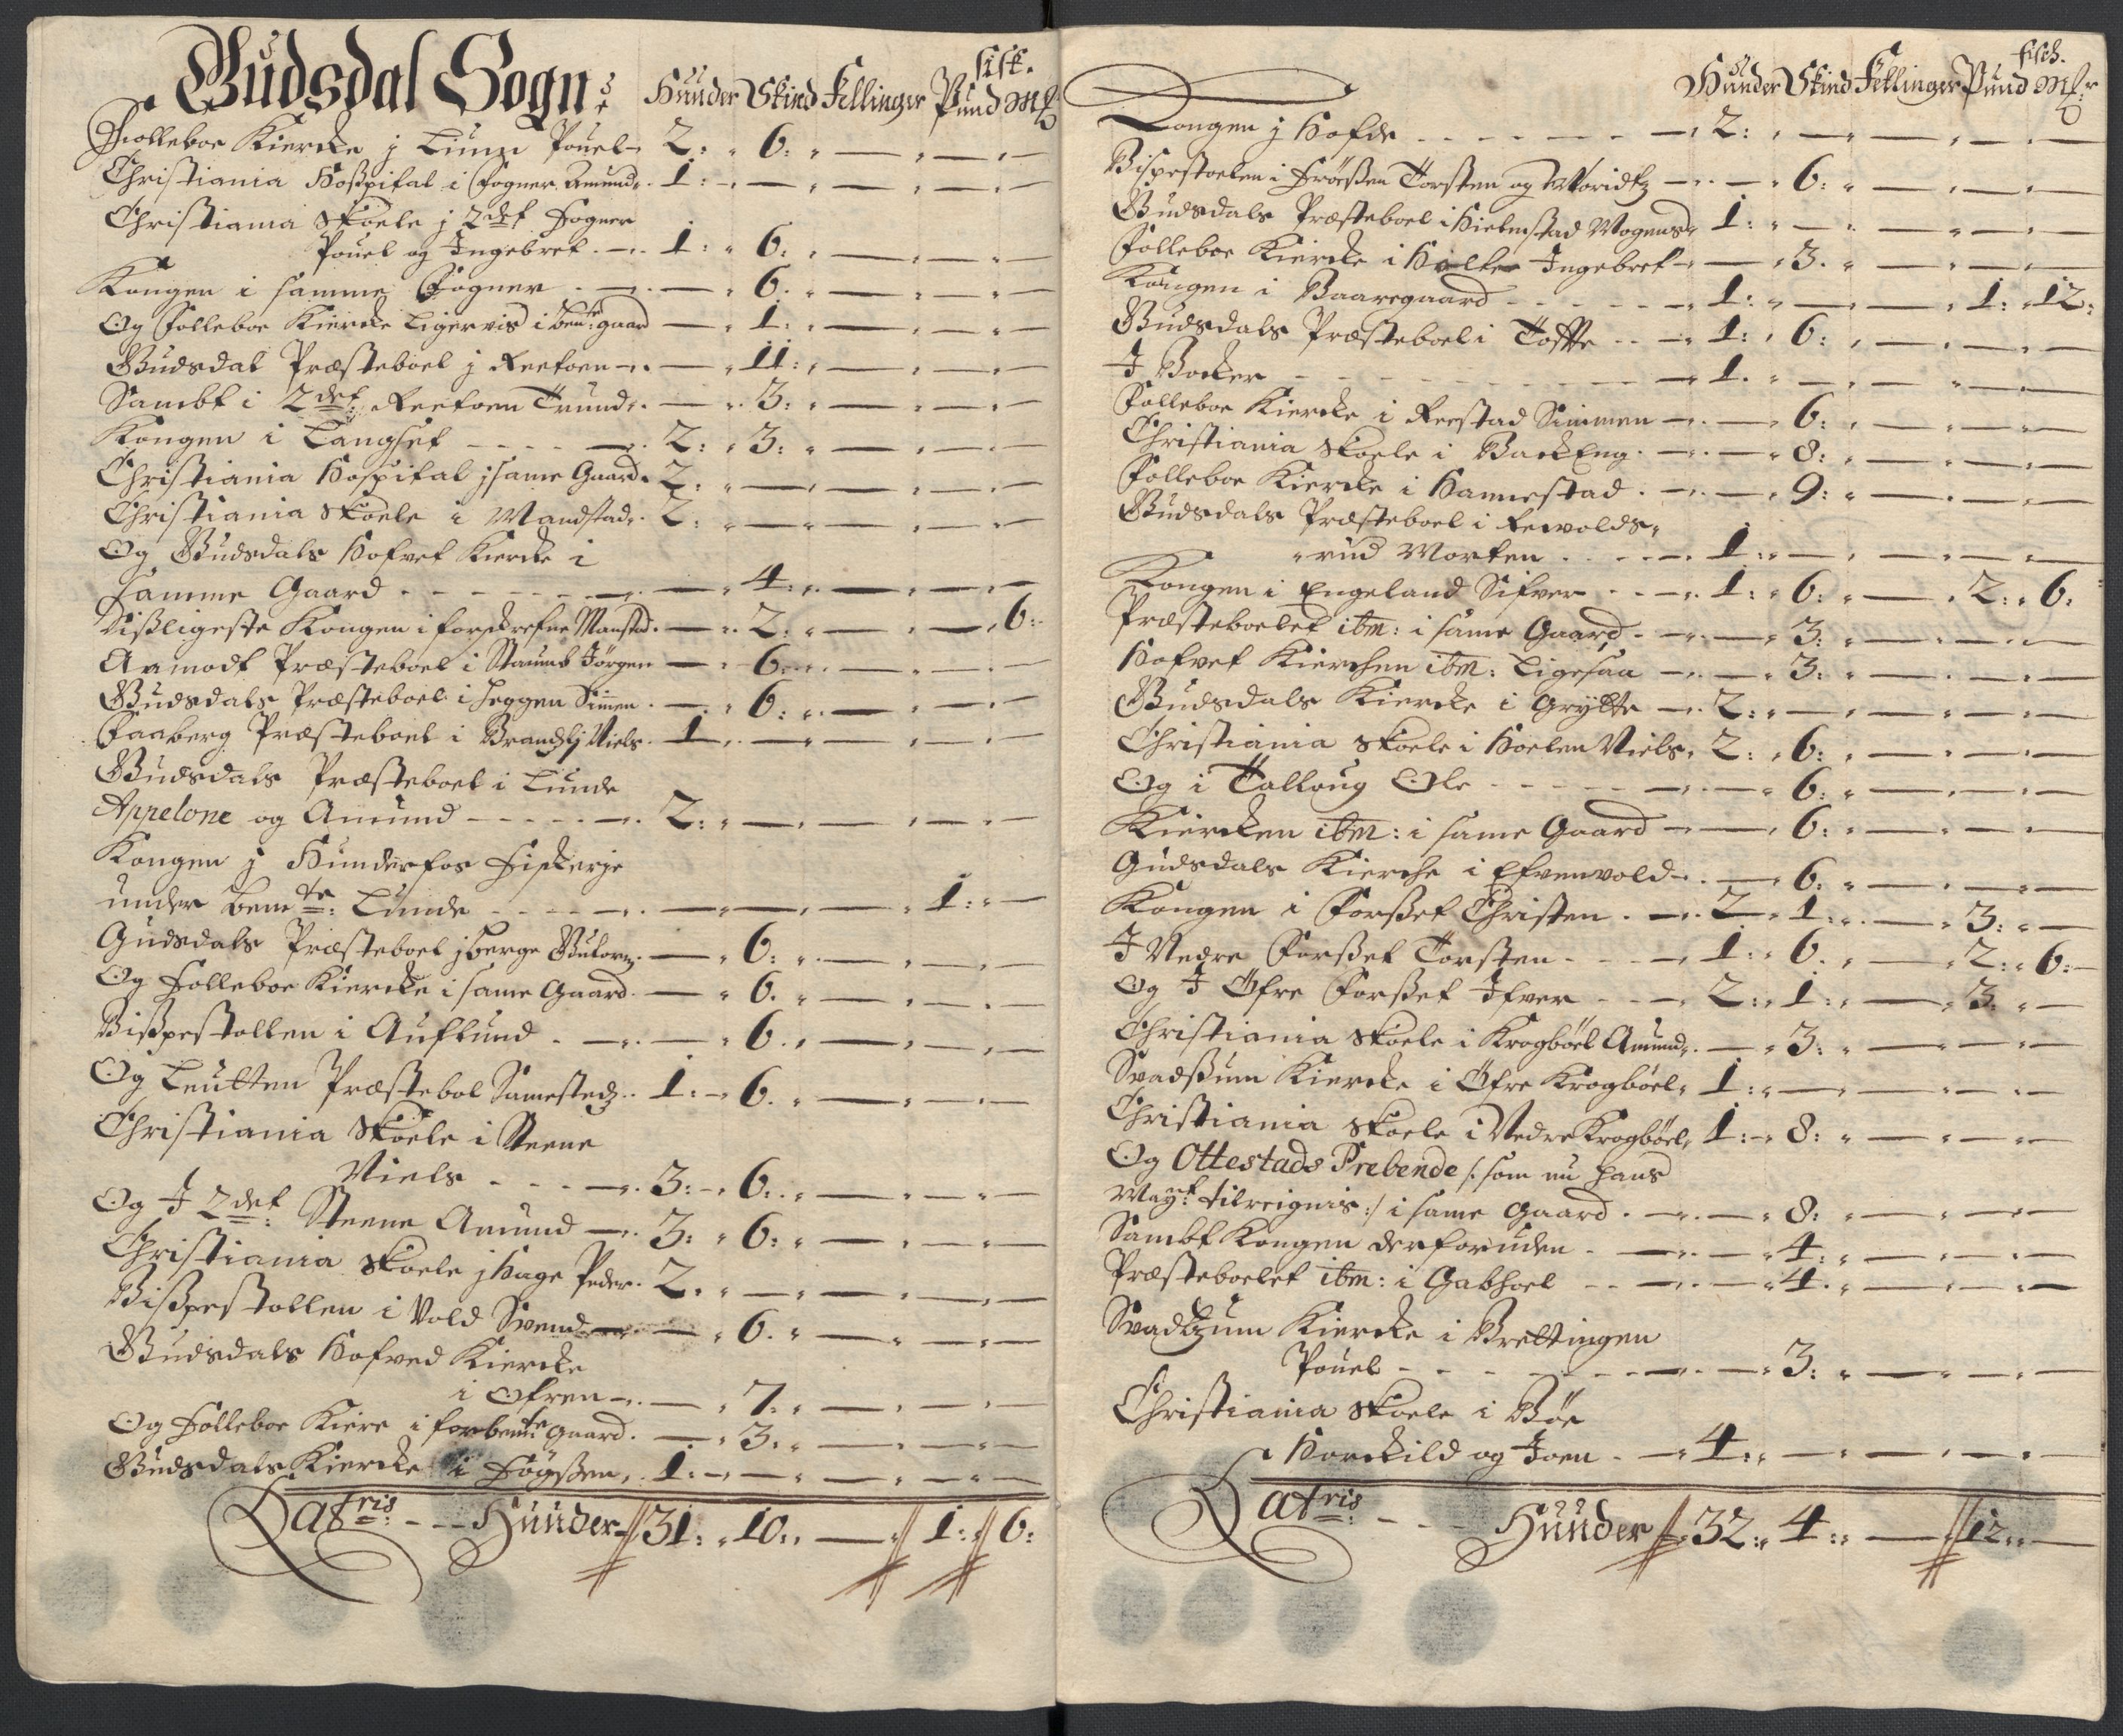 Gudsdal Sogn:
Hunder Skind Fellinger Pund M℔
fisk.
Folleboe Kiercke j Lunn Pouel 2: 6: — — —
Christiania Hoßpital i Fogner Amund. 1: — — — —
Christiania Skoele j 2det Fogner
Pouel og Ingebret. — 1: 6: — — —
Kongen i samme Fogner — — 6. — — —
Og Folleboe Kiercke ligervis i bente: gaard — 1: — — —
Gudsdal Præsteboel j Reetoen — — 11: — — —
Sambt i 2det: Reetoen Trund. — 3: — — —
Kongen i Langset — 2: 3: — — —
Christiania Hospital j same Gaard. 2: — — — —
Christiania Skoele i Mandstad. 2: — — — —
Og Gudsdals Hofvet Kiercke i
samme Gaard — — 4: — — —
Dißligeste Kongen i forschrefne Manstad. — 2: — — 6:
Aamodt Præsteboel i Staumb Jörgen — 6: — — —
Gudsdals Præsteboel i Heggen Simen — 6: — — —
Faaberg Præsteboel i Brandlj Niels. 1 — — — —
Gudsdals Præsteboel i Lunde
Appelone og Amund — 2: — — — —
Kongen j Hunderfos Fiskerje
under bemte: Lunde — — — — 1: —
Gudsdals Præsteboel j berge Gulorm. — 6: — — —
Og Folleboe Kiercke i same Gaard. — 6. — — —
Bißpestollen i Auflund — 6. — — —
Og Leutten Præstebol Samestedz. 1: 6. — — —
Christiania Skoele i Steene
Niels — 3: 6: — — —
Og I 2det: Steene Amund — 3: 6: — — —
Christiania Skoele j Hage Peder. 2. — — — —
Bißpestollen i Vold Svend — 6. — — —
Gudsdals Hofved Kiercke
i Ofren — 7. — — —
Og Folleboe Kiere i forbemte Gaard. — 3. — — —
Gudsdals Kiercke i Fögßen, 1: — — — —
Latris: — Hunder 31: 10: — 1: 6:
fisch.
Hunder Skind Fellinger Pund M℔r
Kongen j Hofde — 2: — — — —
Bispestoelen i Fröeßen Torsten og Moridtz — 6: — — —
Gudsdals Præsteboel i Hielmstad Mogens. 1: — — — —
Folleboe Kiercke i Holte Ingebret — 3. — — —
Kongen i Baaregaard — 1: — — 1: 12:
Gudsdals Præsteboel i Tofte — 1: 6: — — —
I Boeker — 1. — — — —
Folleboe Kiercke i Reestad Simmen — 6: — — —
Christiania Skoele i BackEng. — 8: — — —
Folleboe Kiercke i Hannestad. — 9: — — —
Gudsdals Præsteboel i Reevolds,
rud Morten — 1: — — — —
Kongen i Engeland Sifver — 1: 6: — 2: 6:
Præsteboelet ibm: i same Gaard — 3: — — —
Hofvet Kierchen ibm: Ligesaa — 3: — — —
Gudsdals Kiercke i Grytte — 2: — — — —
Christiania Skoele i Hoelen Niels. 2: 6: — — —
Og i Tallaug Ole — 6: — — —
Kiercken ibm: i same Gaard — 6: — — —
Gudsdals Kierche i Efvenvold — 6: — — —
Kongen i Forßet Christen — 2 1: — 3: —
I Nedre Forßet Torsten — 1: 6. — 2: 6:
Og I Öfre Forßet Ifver — 2: 1: — 3: —
Christiania Skoele i Krogböel Amund. — 3: — — —
Svadßum Kiercke i Öfre Krogböel, 1: — — — —
Christiania Skoele i Nedre Krogböel, 1: 8: — — —
Og Ottestads Prebende /: som nu hans
Mayt: tilreignis :/ i same Gaard. — 8: — — —
Sambt Kongen derforuden — 4: — — —
Præsteboelet ibm: i Gabhoel — 4. — — —
Svadtzum Kiercke i Brettingen
Pouel — 3: — — —
Christiania Skoele i Böe
Horckild og Joen — 4: — — — —
Latris: — Hunder 32: 4: — 12: —